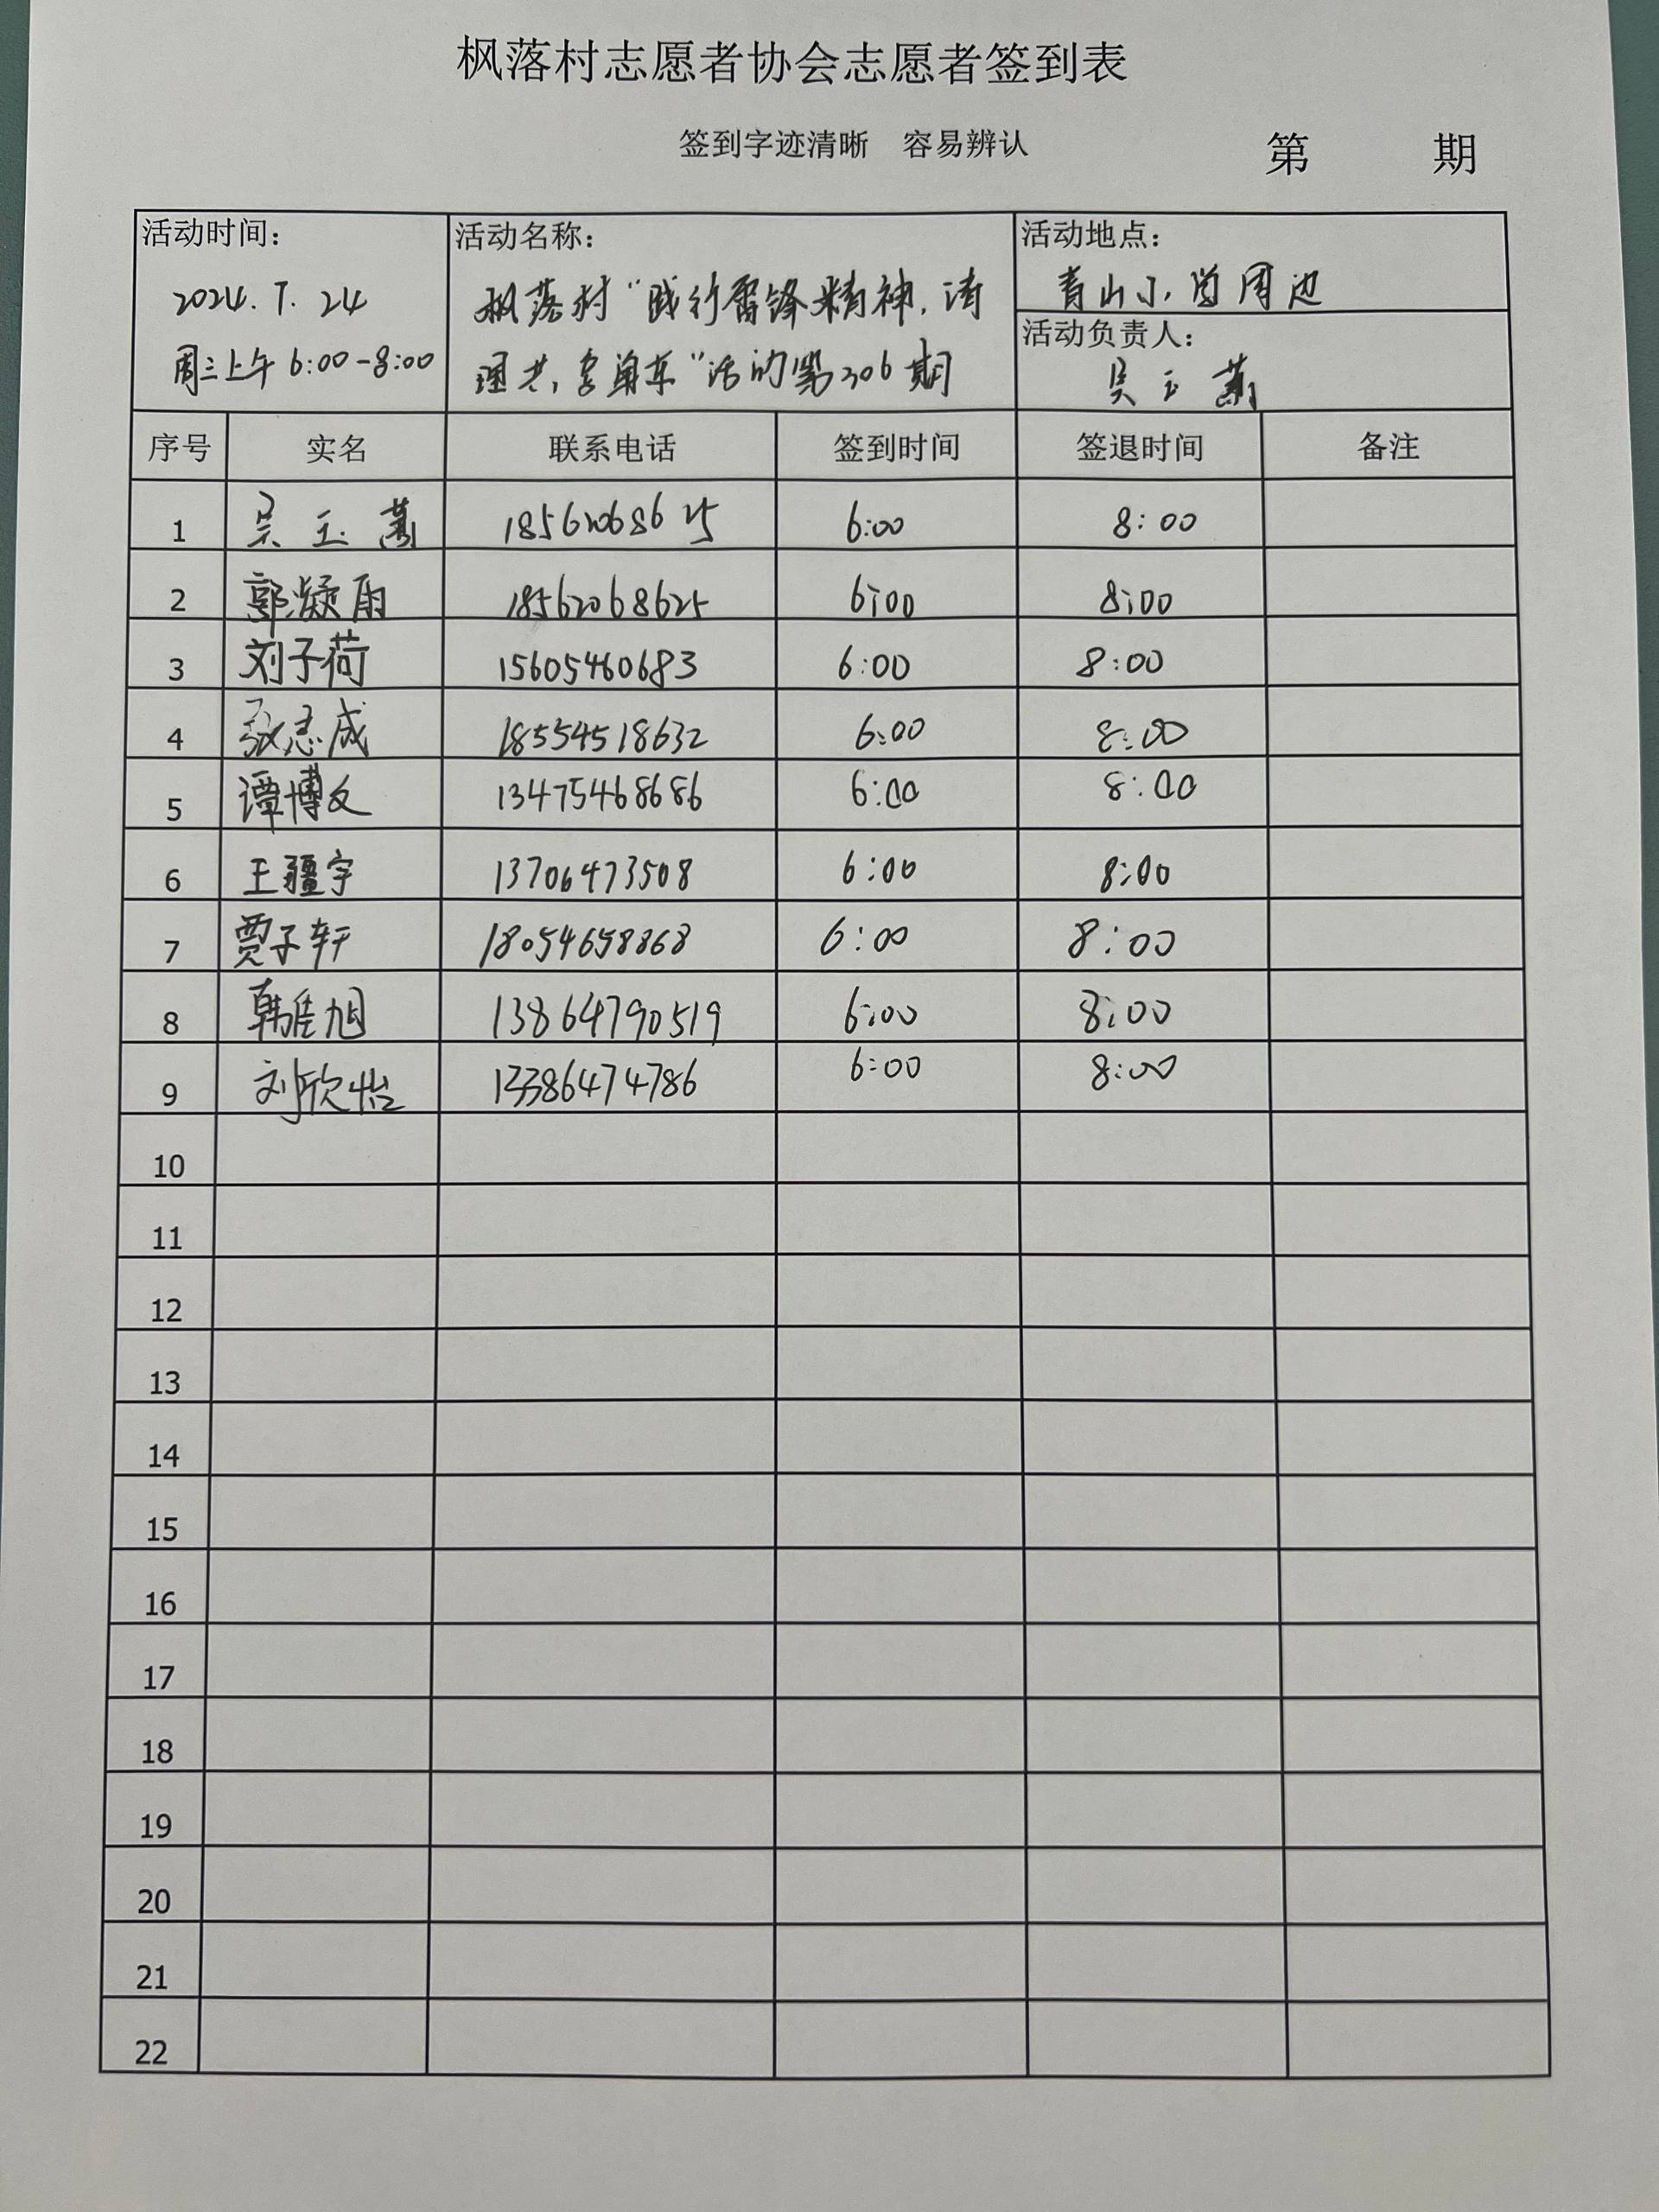 枫落村志愿者协会志愿者签到表
签到字迹清晰 容易辨认
第 期
活动时间：
2024.7.24
周三上午 6:00-8:00
活动名称：
枫落村“践行雷锋精神，清
理共享单车”活动第306期
活动地点：
青山小学周边
活动负责人：
吴玉萧
序号 实名 联系电话 签到时间 签退时间 备注
1 吴玉萧 18562068625 6:00 8:00
2 郭凝雨 18562068625 6:00 8:00
3 刘子荷 15605460683 6:00 8:00
4 张志成 18554518632 6:00 8:00
5 谭博文 13475468686 6:00 8:00
6 王疆宇 13706473508 6:00 8:00
7 贾子轩 18054658868 6:00 8:00
8 韩佳旭 13864790519 6:00 8:00
9 刘欣怡 13386474786 6:00 8:00
10
11
12
13
14
15
16
17
18
19
20
21
22